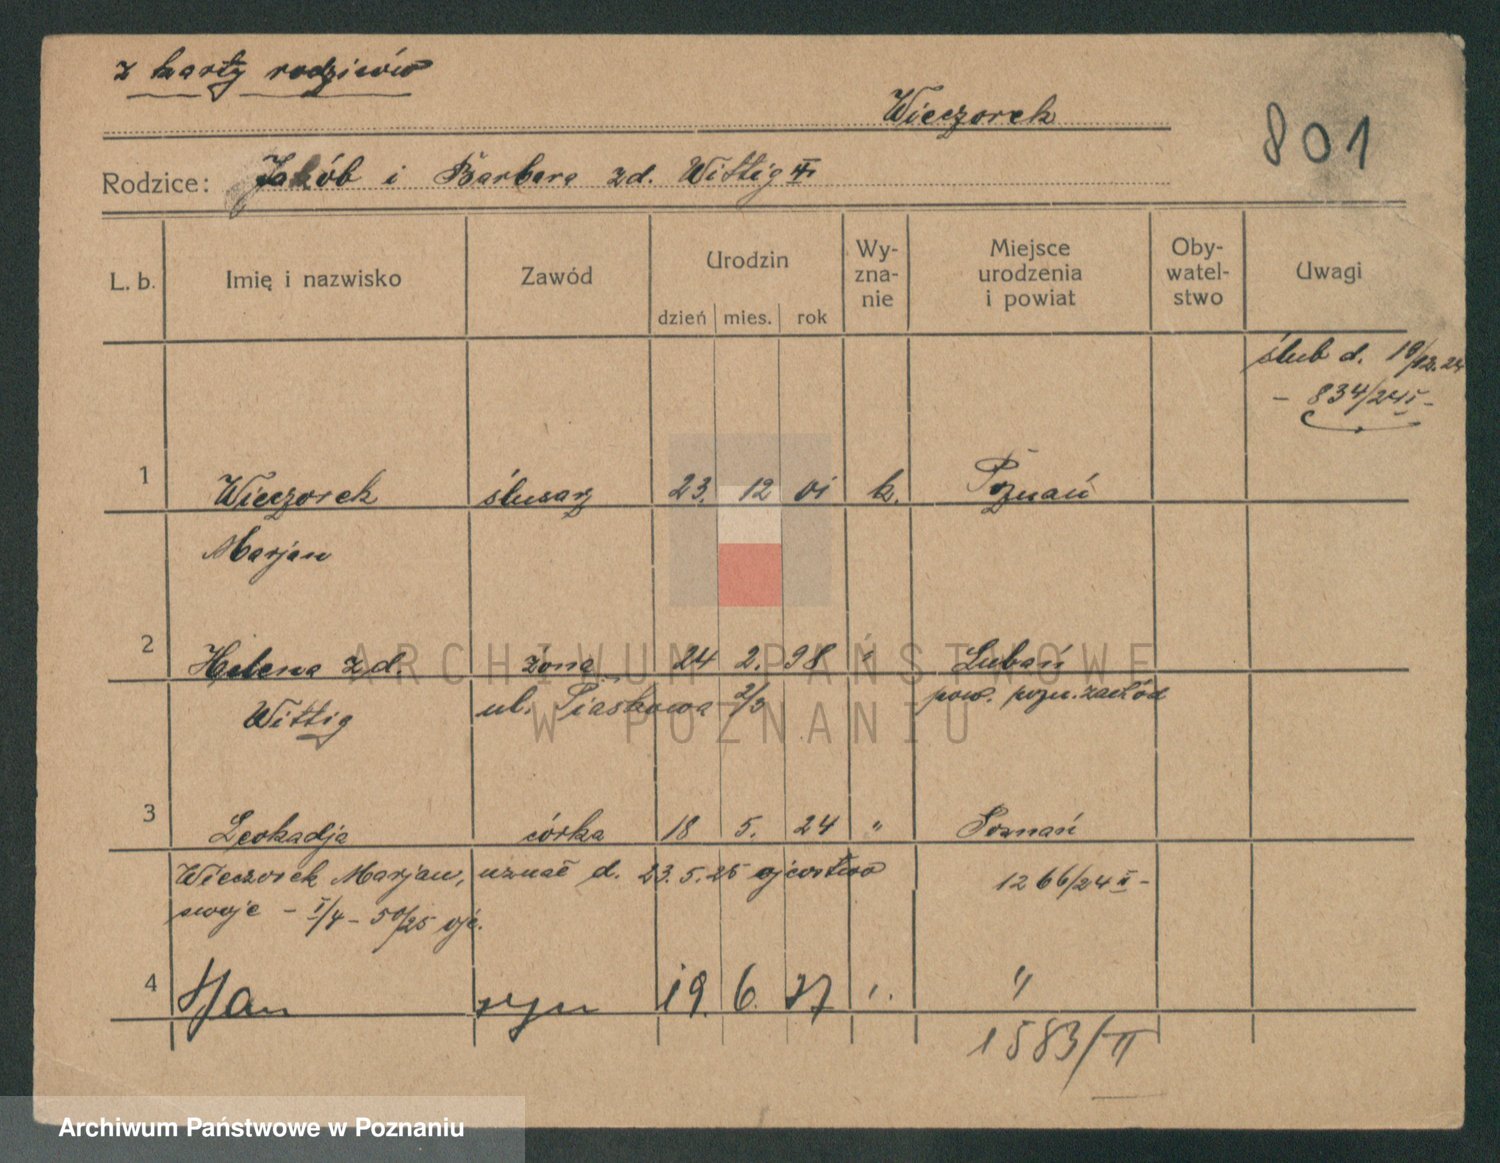 z karty rodziców
Wieczorek
801
Rodzice: Jakób i Barbara zd. Wittig
L. b. Imię i nazwisko Zawód Urodzin dzień mies. rok Wy-zna-nie Miejsce urodzenia i powiat Oby-watel-stwo Uwagi
ślub d. 19/12.24
- 834/24 I -
1 Wieczorek ślusarz 23. 12 01 k. Poznań
Marjan
2 Helena zd. żona 24 2. 98 " Lubań
Wittig ul. Piaskowa 2/3 pow. pozn. zachód
3 Leokadja córka 18 5. 24 " Poznań
Wieczorek Marjan, uznał d. 23.5.25 ojcostwo 1266/24 II -
swoje - I/4 - 50/25 ojc.
4 Jan syn 19. 6. 27 " "
1583/II
ARCHIWUM PAŃSTWOWE
W POZNANIU
Archiwum Państwowe w Poznaniu